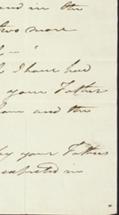 and in the
two more
I have had
your Father
and the
by your Father
expected in